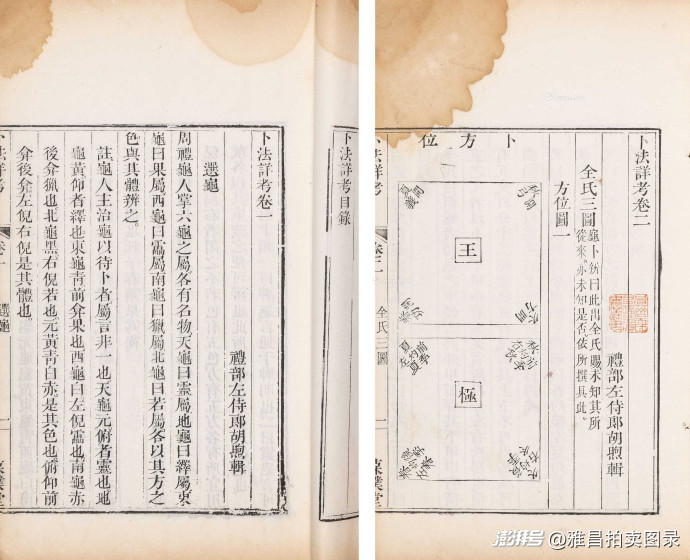 卜法詳考目錄
卜法詳考卷一
禮部左侍郎胡煦輯
選龜
周禮龜人掌六龜之屬各有名物天龜曰靈屬地龜曰繹屬東
龜曰果屬西龜曰靁屬南龜曰獵屬北龜曰若屬各以其方之
色與其體辨之
註龜人主治龜以待卜者屬言非一也天龜元俯者靈也地
龜黃仰者繹也東龜青前弇果也西龜白左倪靁也南龜赤
後弇獵也北龜黑右倪若也元黃青白赤是其色也俯仰前
弇後弇左倪右倪是其體也
卜法詳考
卷一
選龜
一
葆璞堂
卜法詳考卷二
禮部左侍郎胡煦輯
全氏三圖
龜卜新曰此出全氏賜未知其所
從來亦未知是否依所撰具此
方位圖一
卜方位
王
極
卜法詳考
卷二
全氏三圖
一
葆璞堂
澎湃号@雅昌拍卖图录